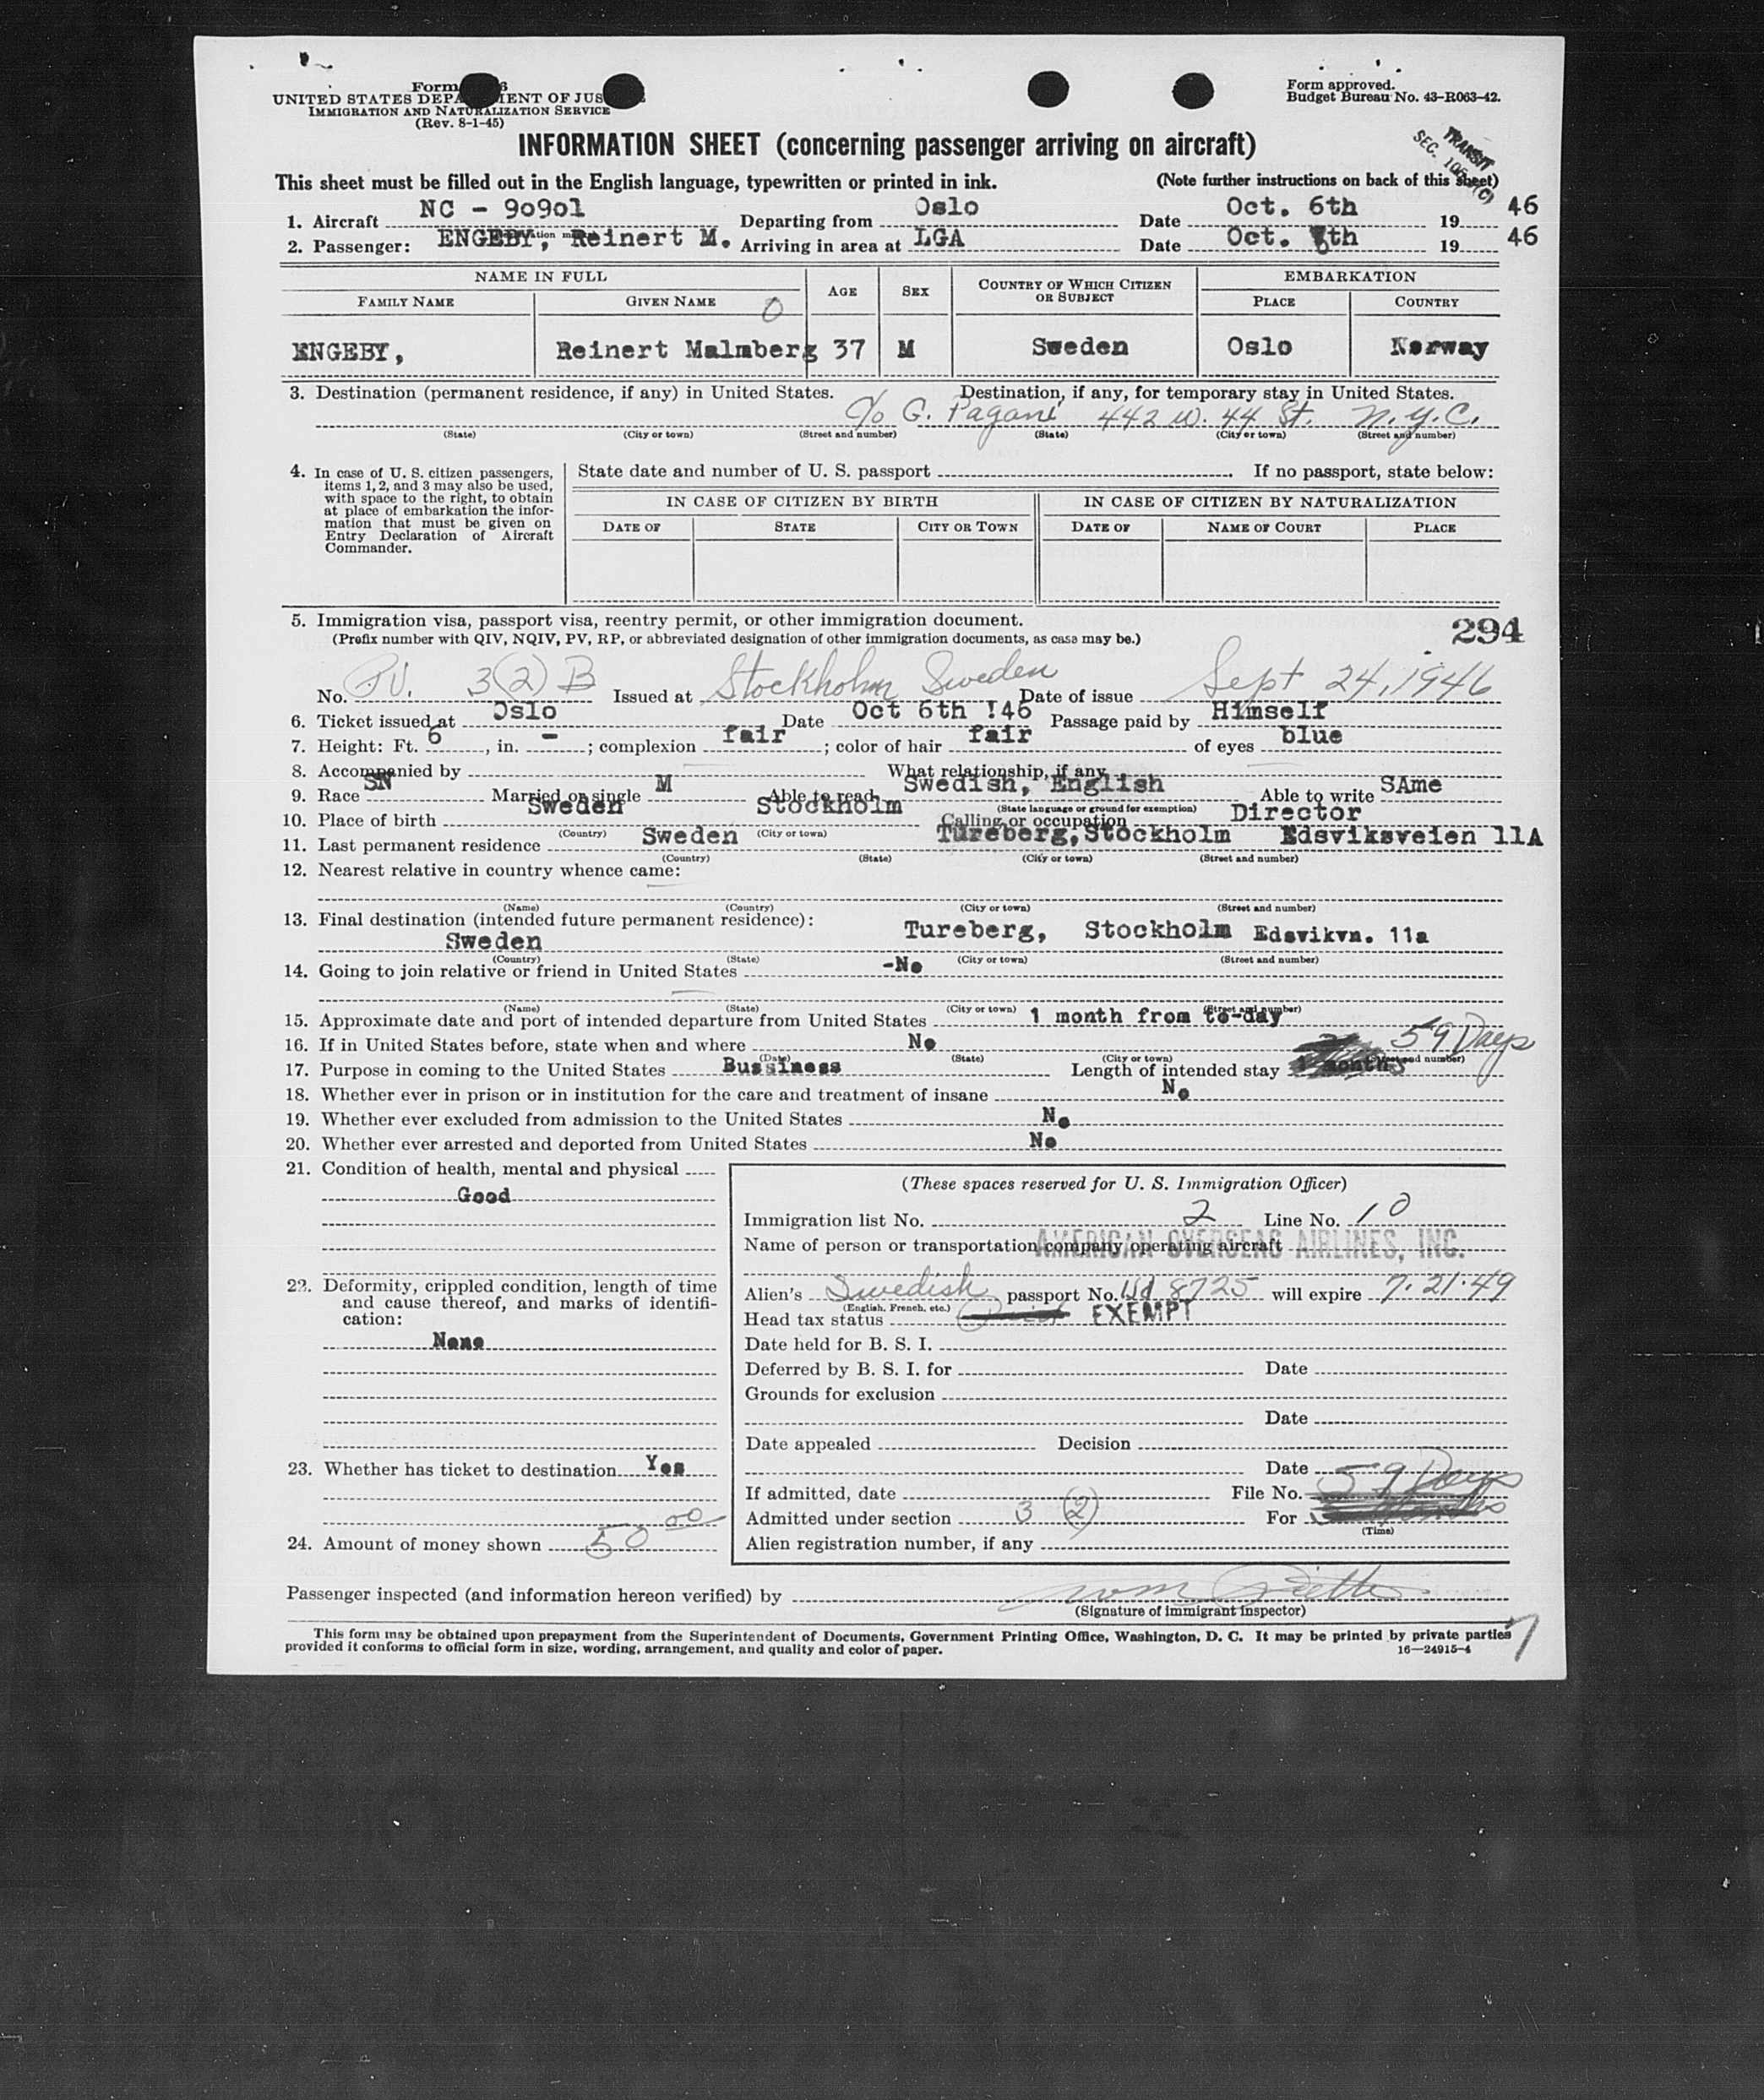 Form
UNITED STATES DEPARTMENT OF JUSTICE
IMMIGRATION AND NATURALIZATION SERVICE
(Rev. 8-1-45)
Form approved.
Budget Bureau No. 43-R063-42.
TRANSIT
SEC.
INFORMATION SHEET (concerning passenger arriving on aircraft)
This sheet must be filled out in the English language, typewritten or printed in ink. (Note further instructions on back of this sheet)
1. Aircraft NC - 90901 Departing from Oslo Date Oct. 6th 19 46
2. Passenger: ENGEBY, Reinert M. Arriving in area at LGA Date Oct. th 19 46
NAME IN FULL AGE SEX COUNTRY OF WHICH CITIZEN OR SUBJECT EMBARKATION
FAMILY NAME GIVEN NAME PLACE COUNTRY
0
ENGEBY, Reinert Malmberg 37 M Sweden Oslo Norway
3. Destination (permanent residence, if any) in United States. Destination, if any, for temporary stay in United States.
c/o G. Pagani 442 W. 44 St. N.Y.C.
(State) (City or town) (Street and number) (State) (City or town) (Street and number)
4. In case of U. S. citizen passengers, items 1, 2, and 3 may also be used, with space to the right, to obtain at place of embarkation the information that must be given on Entry Declaration of Aircraft Commander.
State date and number of U. S. passport If no passport, state below:
IN CASE OF CITIZEN BY BIRTH IN CASE OF CITIZEN BY NATURALIZATION
DATE OF STATE CITY OR TOWN DATE OF NAME OF COURT PLACE
5. Immigration visa, passport visa, reentry permit, or other immigration document.
(Prefix number with QIV, NQIV, PV, RP, or abbreviated designation of other immigration documents, as case may be.)
294
No. P.V. 3(2) B Issued at Stockholm Sweden Date of issue Sept 24, 1946
6. Ticket issued at Oslo Date Oct 6th !46 Passage paid by Himself
7. Height: Ft. 6, in. -; complexion fair; color of hair fair of eyes blue
8. Accompanied by What relationship, if any
9. Race SN Married or single M Able to read Swedish, English Able to write SAme
(State language or ground for exemption)
10. Place of birth Sweden Stockholm Calling or occupation Director
(Country) (City or town)
11. Last permanent residence Sweden Tureberg, Stockholm Edsviksveien 11A
(Country) (State) (City or town) (Street and number)
12. Nearest relative in country whence came:
(Name) (Country) (City or town) (Street and number)
13. Final destination (intended future permanent residence):
Sweden Tureberg, Stockholm Edsvikvn. 11a
(Country) (State) (City or town) (Street and number)
14. Going to join relative or friend in United States -No
(Name) (State) (City or town) (Street and number)
15. Approximate date and port of intended departure from United States 1 month from to-day
16. If in United States before, state when and where No
(Date) (State) (City or town) (Street and number)
59 Days
17. Purpose in coming to the United States Bussiness Length of intended stay
18. Whether ever in prison or in institution for the care and treatment of insane No
19. Whether ever excluded from admission to the United States No
20. Whether ever arrested and deported from United States No
21. Condition of health, mental and physical
Good
22. Deformity, crippled condition, length of time and cause thereof, and marks of identification:
None
23. Whether has ticket to destination Yes
24. Amount of money shown 50 00
(These spaces reserved for U. S. Immigration Officer)
Immigration list No. 2 Line No. 10
Name of person or transportation company operating aircraft AMERICAN OVERSEAS AIRLINES, INC.
Alien's Swedish passport No. 8725 will expire 7.21.49
(English, French, etc.)
Head tax status EXEMPT
Date held for B. S. I.
Deferred by B. S. I. for Date
Grounds for exclusion
Date
Date appealed Decision
Date
59 Days
If admitted, date File No.
Admitted under section 3 (2) For
(Time)
Alien registration number, if any
Passenger inspected (and information hereon verified) by
(Signature of immigrant inspector)
This form may be obtained upon prepayment from the Superintendent of Documents, Government Printing Office, Washington, D. C. It may be printed by private parties
provided it conforms to official form in size, wording, arrangement, and quality and color of paper. 16—24915-4